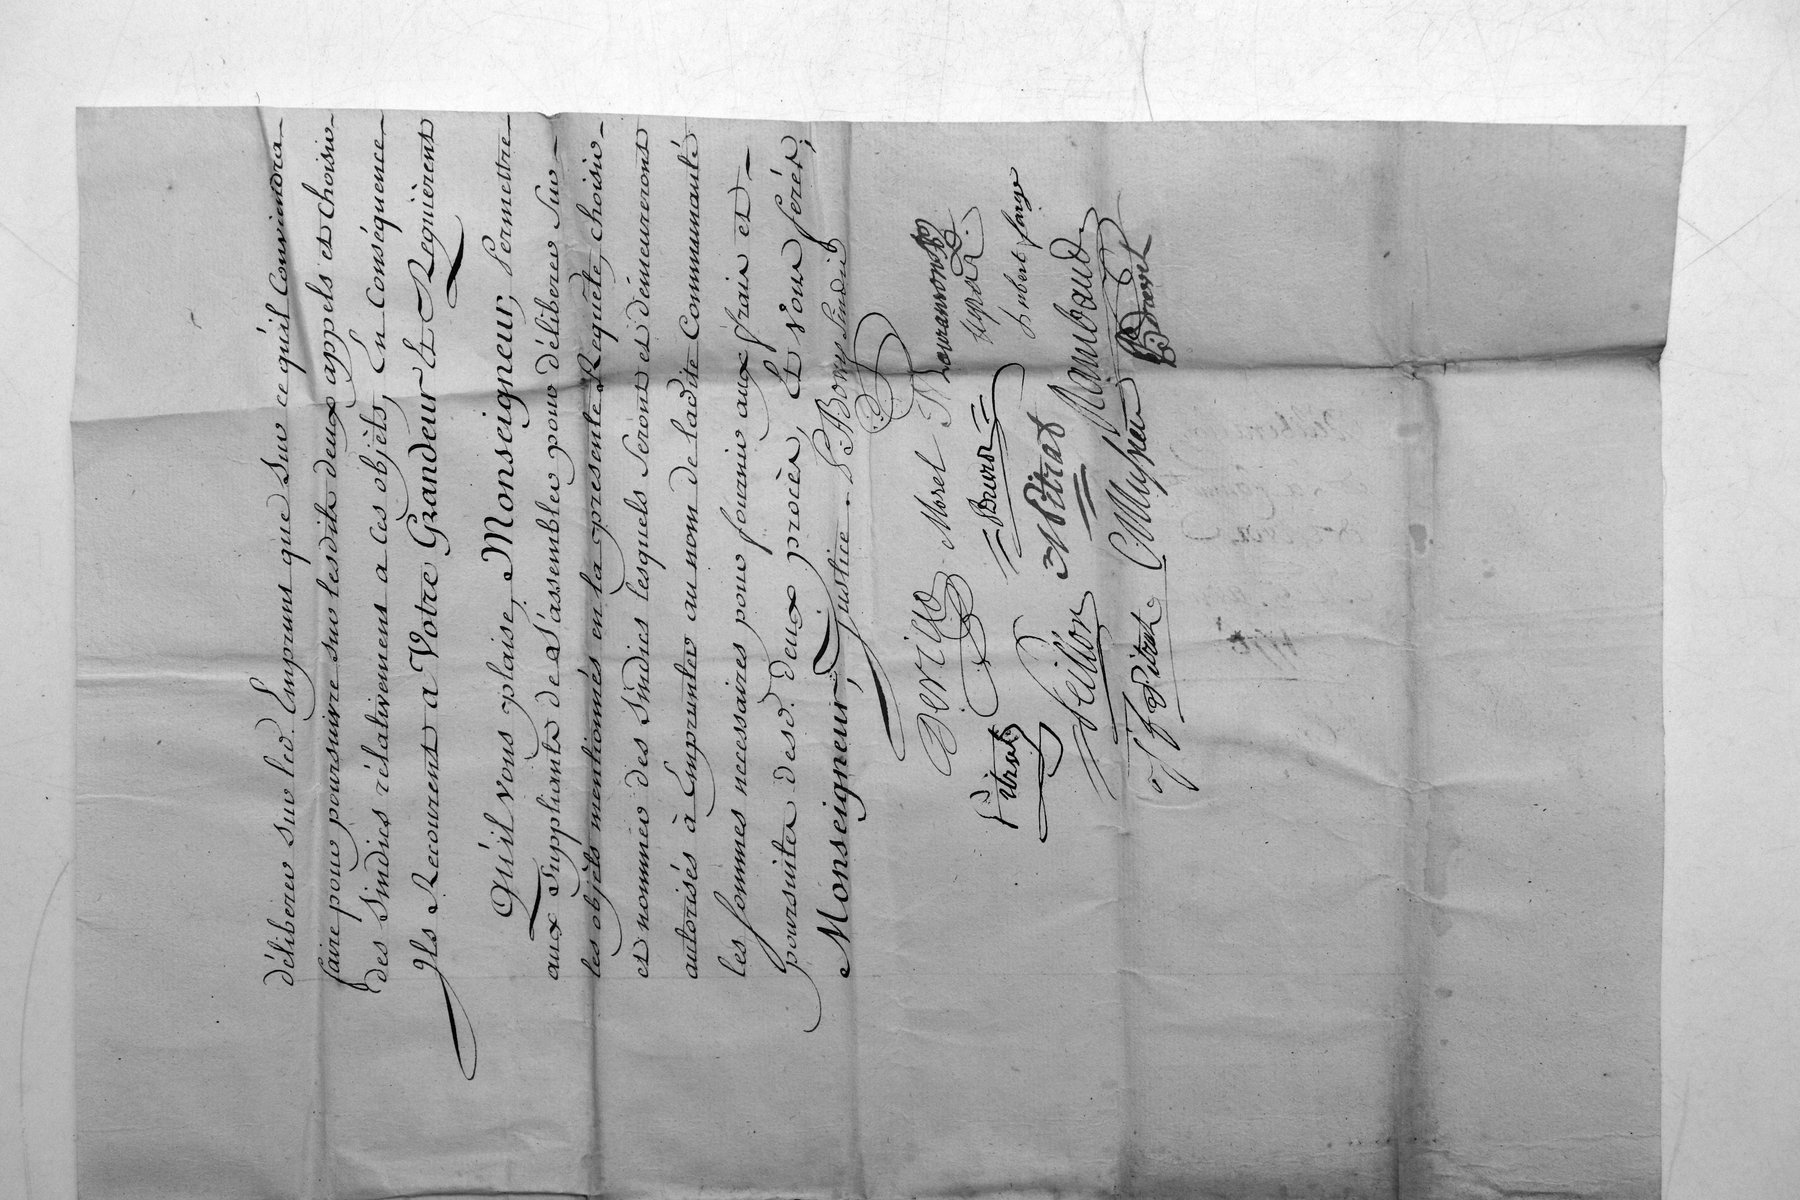 déliberer sur led. Emprunt que sur ce qu'il Conviendra
faire pour poursuivre sur lesdits deux appels et choisir
des Sindics rélativement a Ces objèts, En Conséquence
Ils Recourent a Votre Grandeur Et Requièrent
Qu'il vous plaise, Monseigneur, Permettre
aux Suppliants de s'assembler pour déliberer sur
les objèts mentionnés en la présente Requête, choisir
et nommer des Sindics lesquels seront et démeureront
autorisés à Emprunter au nom de ladite Communauté
les sommes necessaires pour fournir aux frais et
poursuites desd. deux procès, Et vous ferés,
Monseigneur, Justice. P. Bony sindic
Berico Morel
Pitrat Buirod
Peillon Pitrat Rambaud imbert farge
J. F. Pitrat